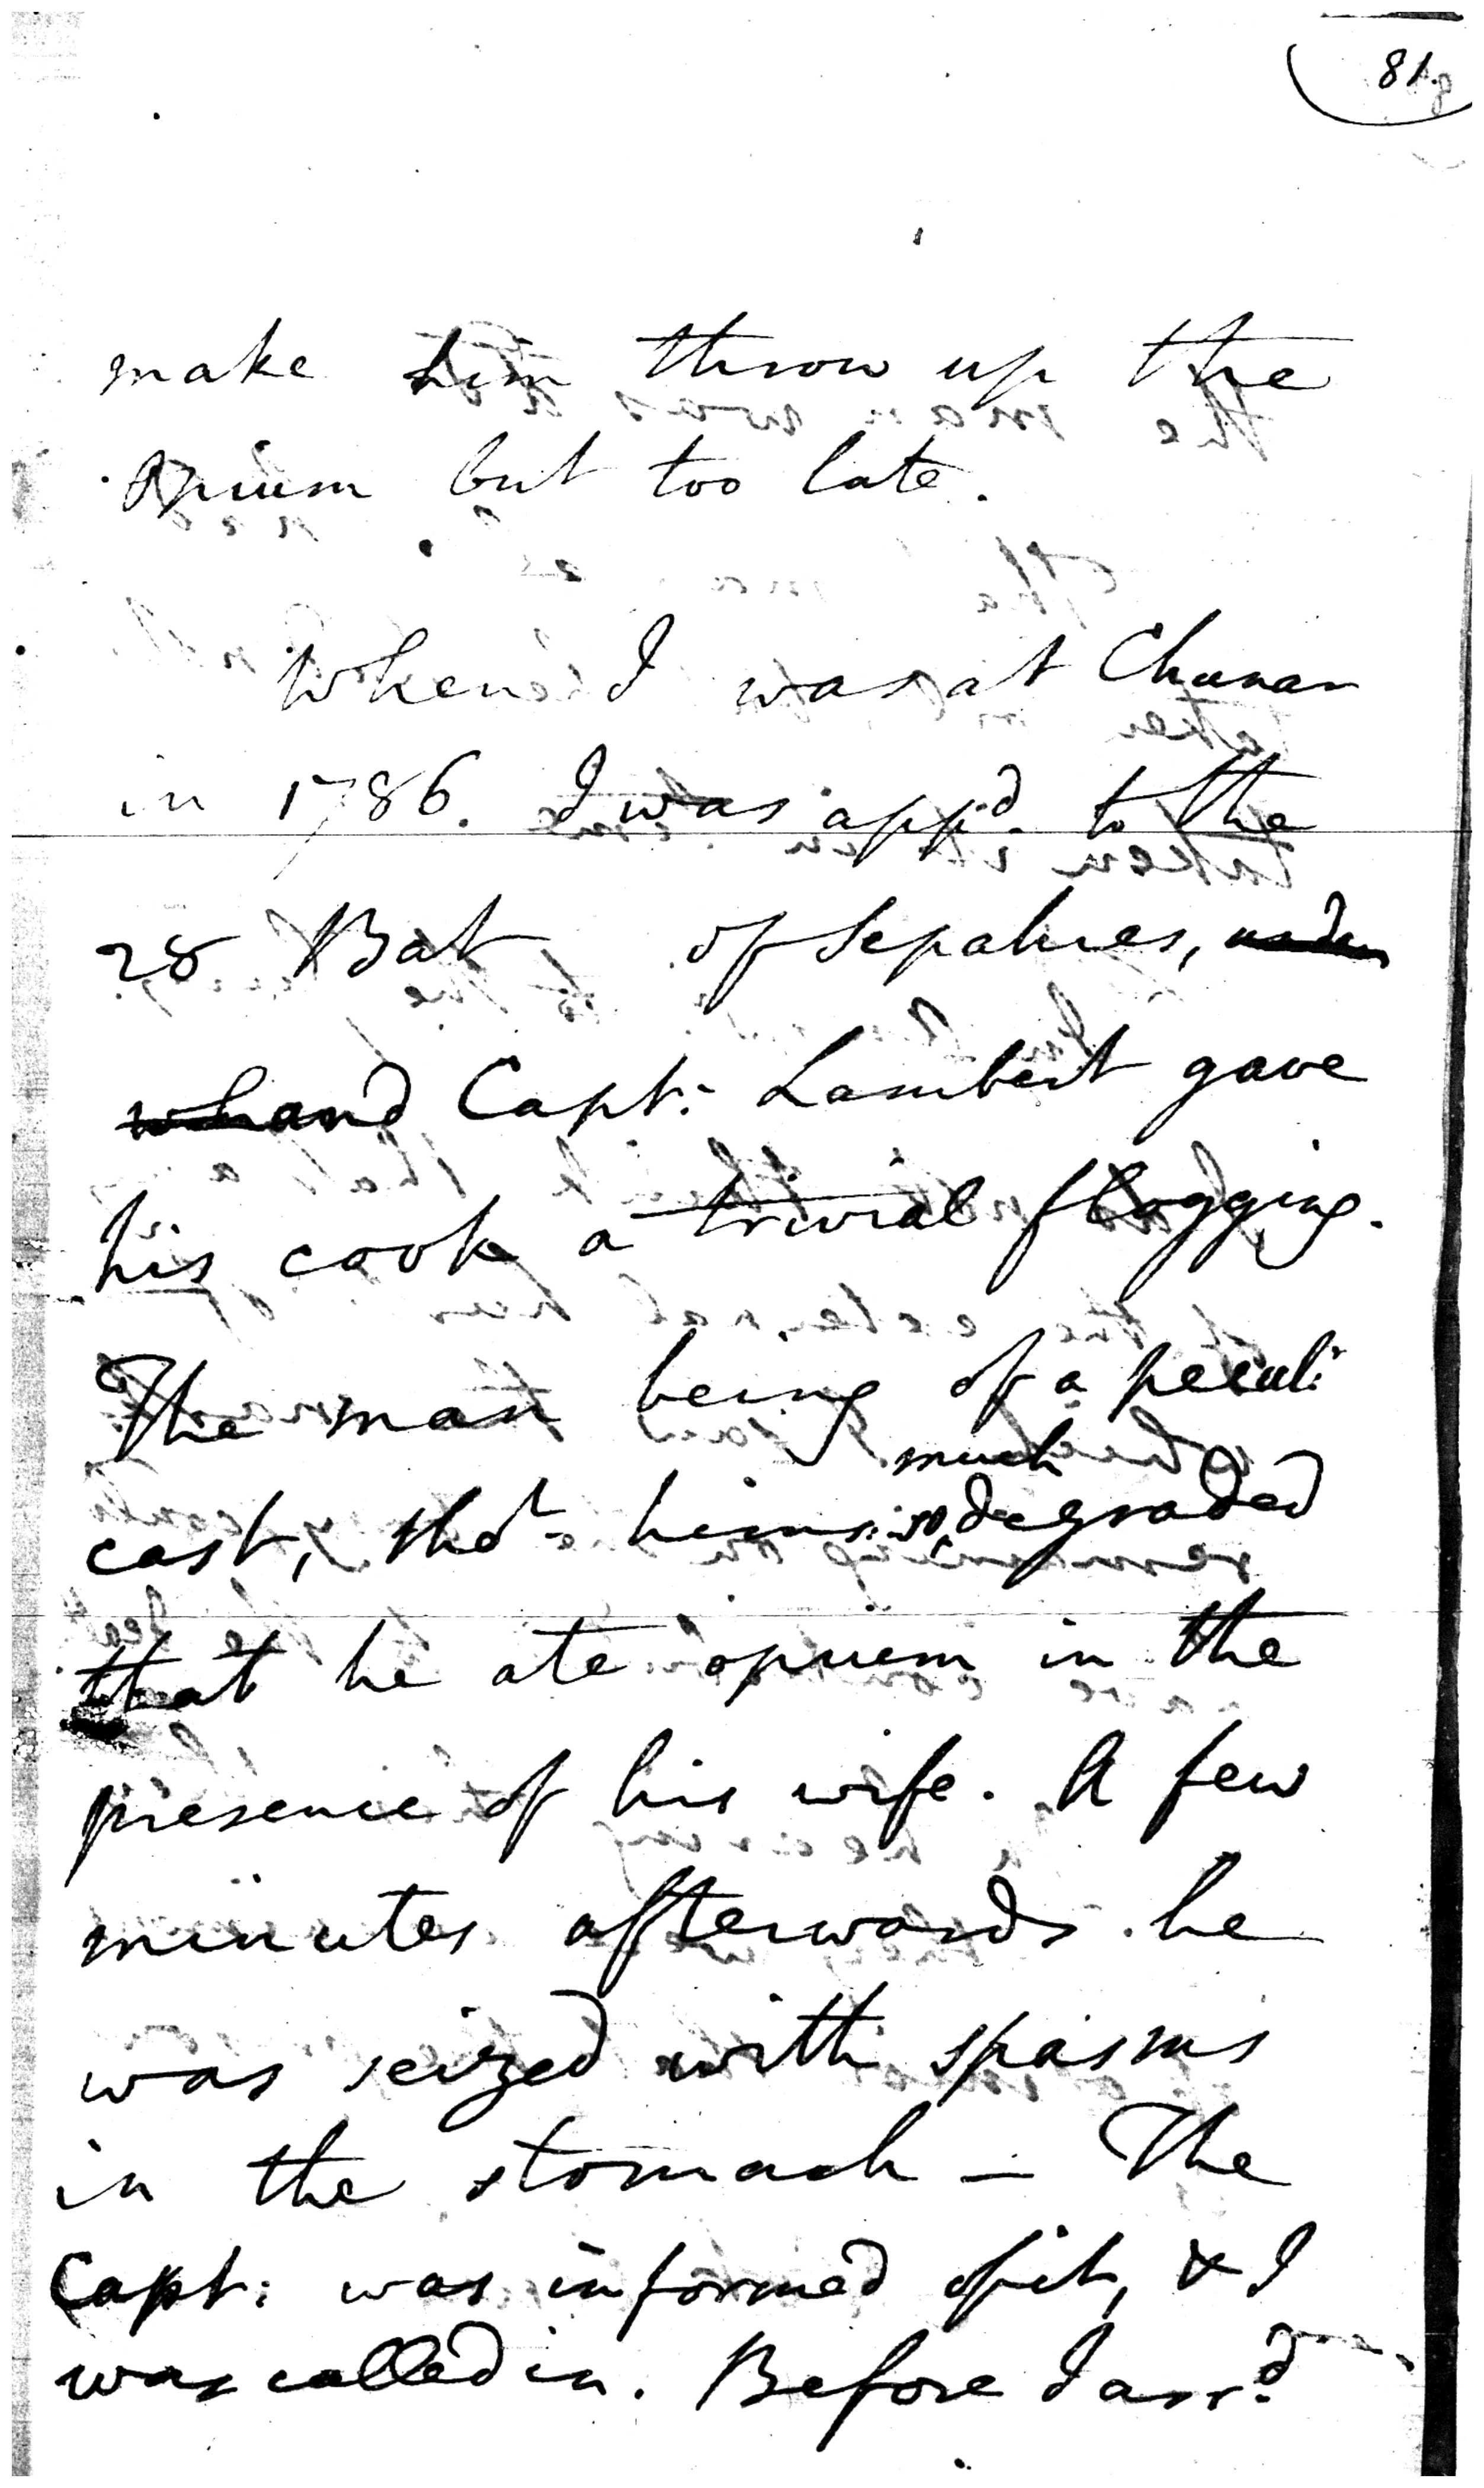 81
make him throw up the
opium but too late.
When I was at Chunar
in 1786. I was app.d to the
28 Bat of Sepahies,
and Capt: Lambert gave
his cook a trivial flogging.
The man being of a peculr
cast, tho't hims: so much degraded
that he ate opium in the
presence of his wife. A few
minutes afterwards he
was seized with spasms
in the stomach – The
Capt: was informed of it, & I
was called in. Before I arr.d